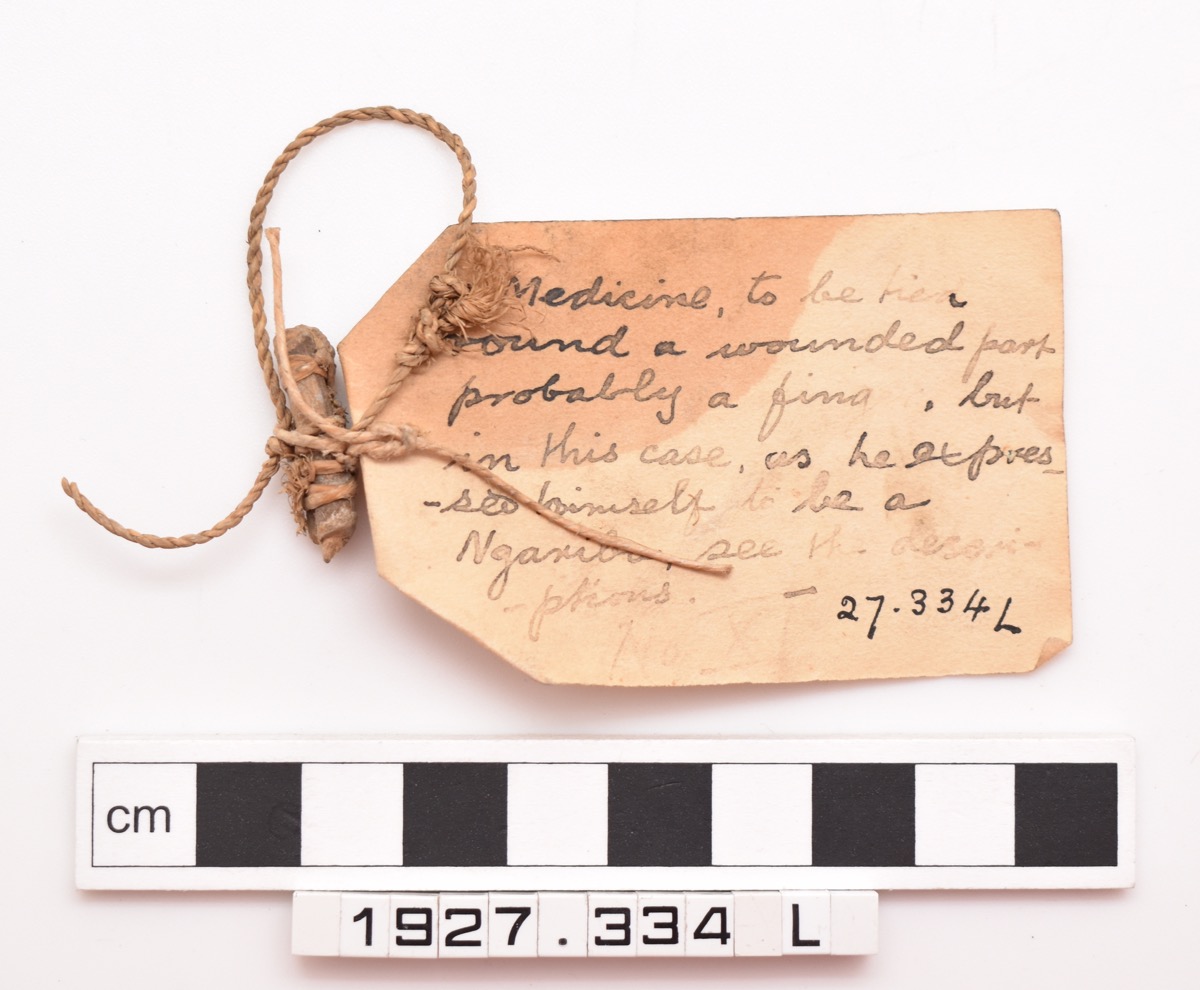 Medicine, to be tied
round a wounded part
probably a fing , but
in this case, as he expres-
-sed himself to be a
see the descri-
-ptions. —
27.334L
cm
1927.334 L